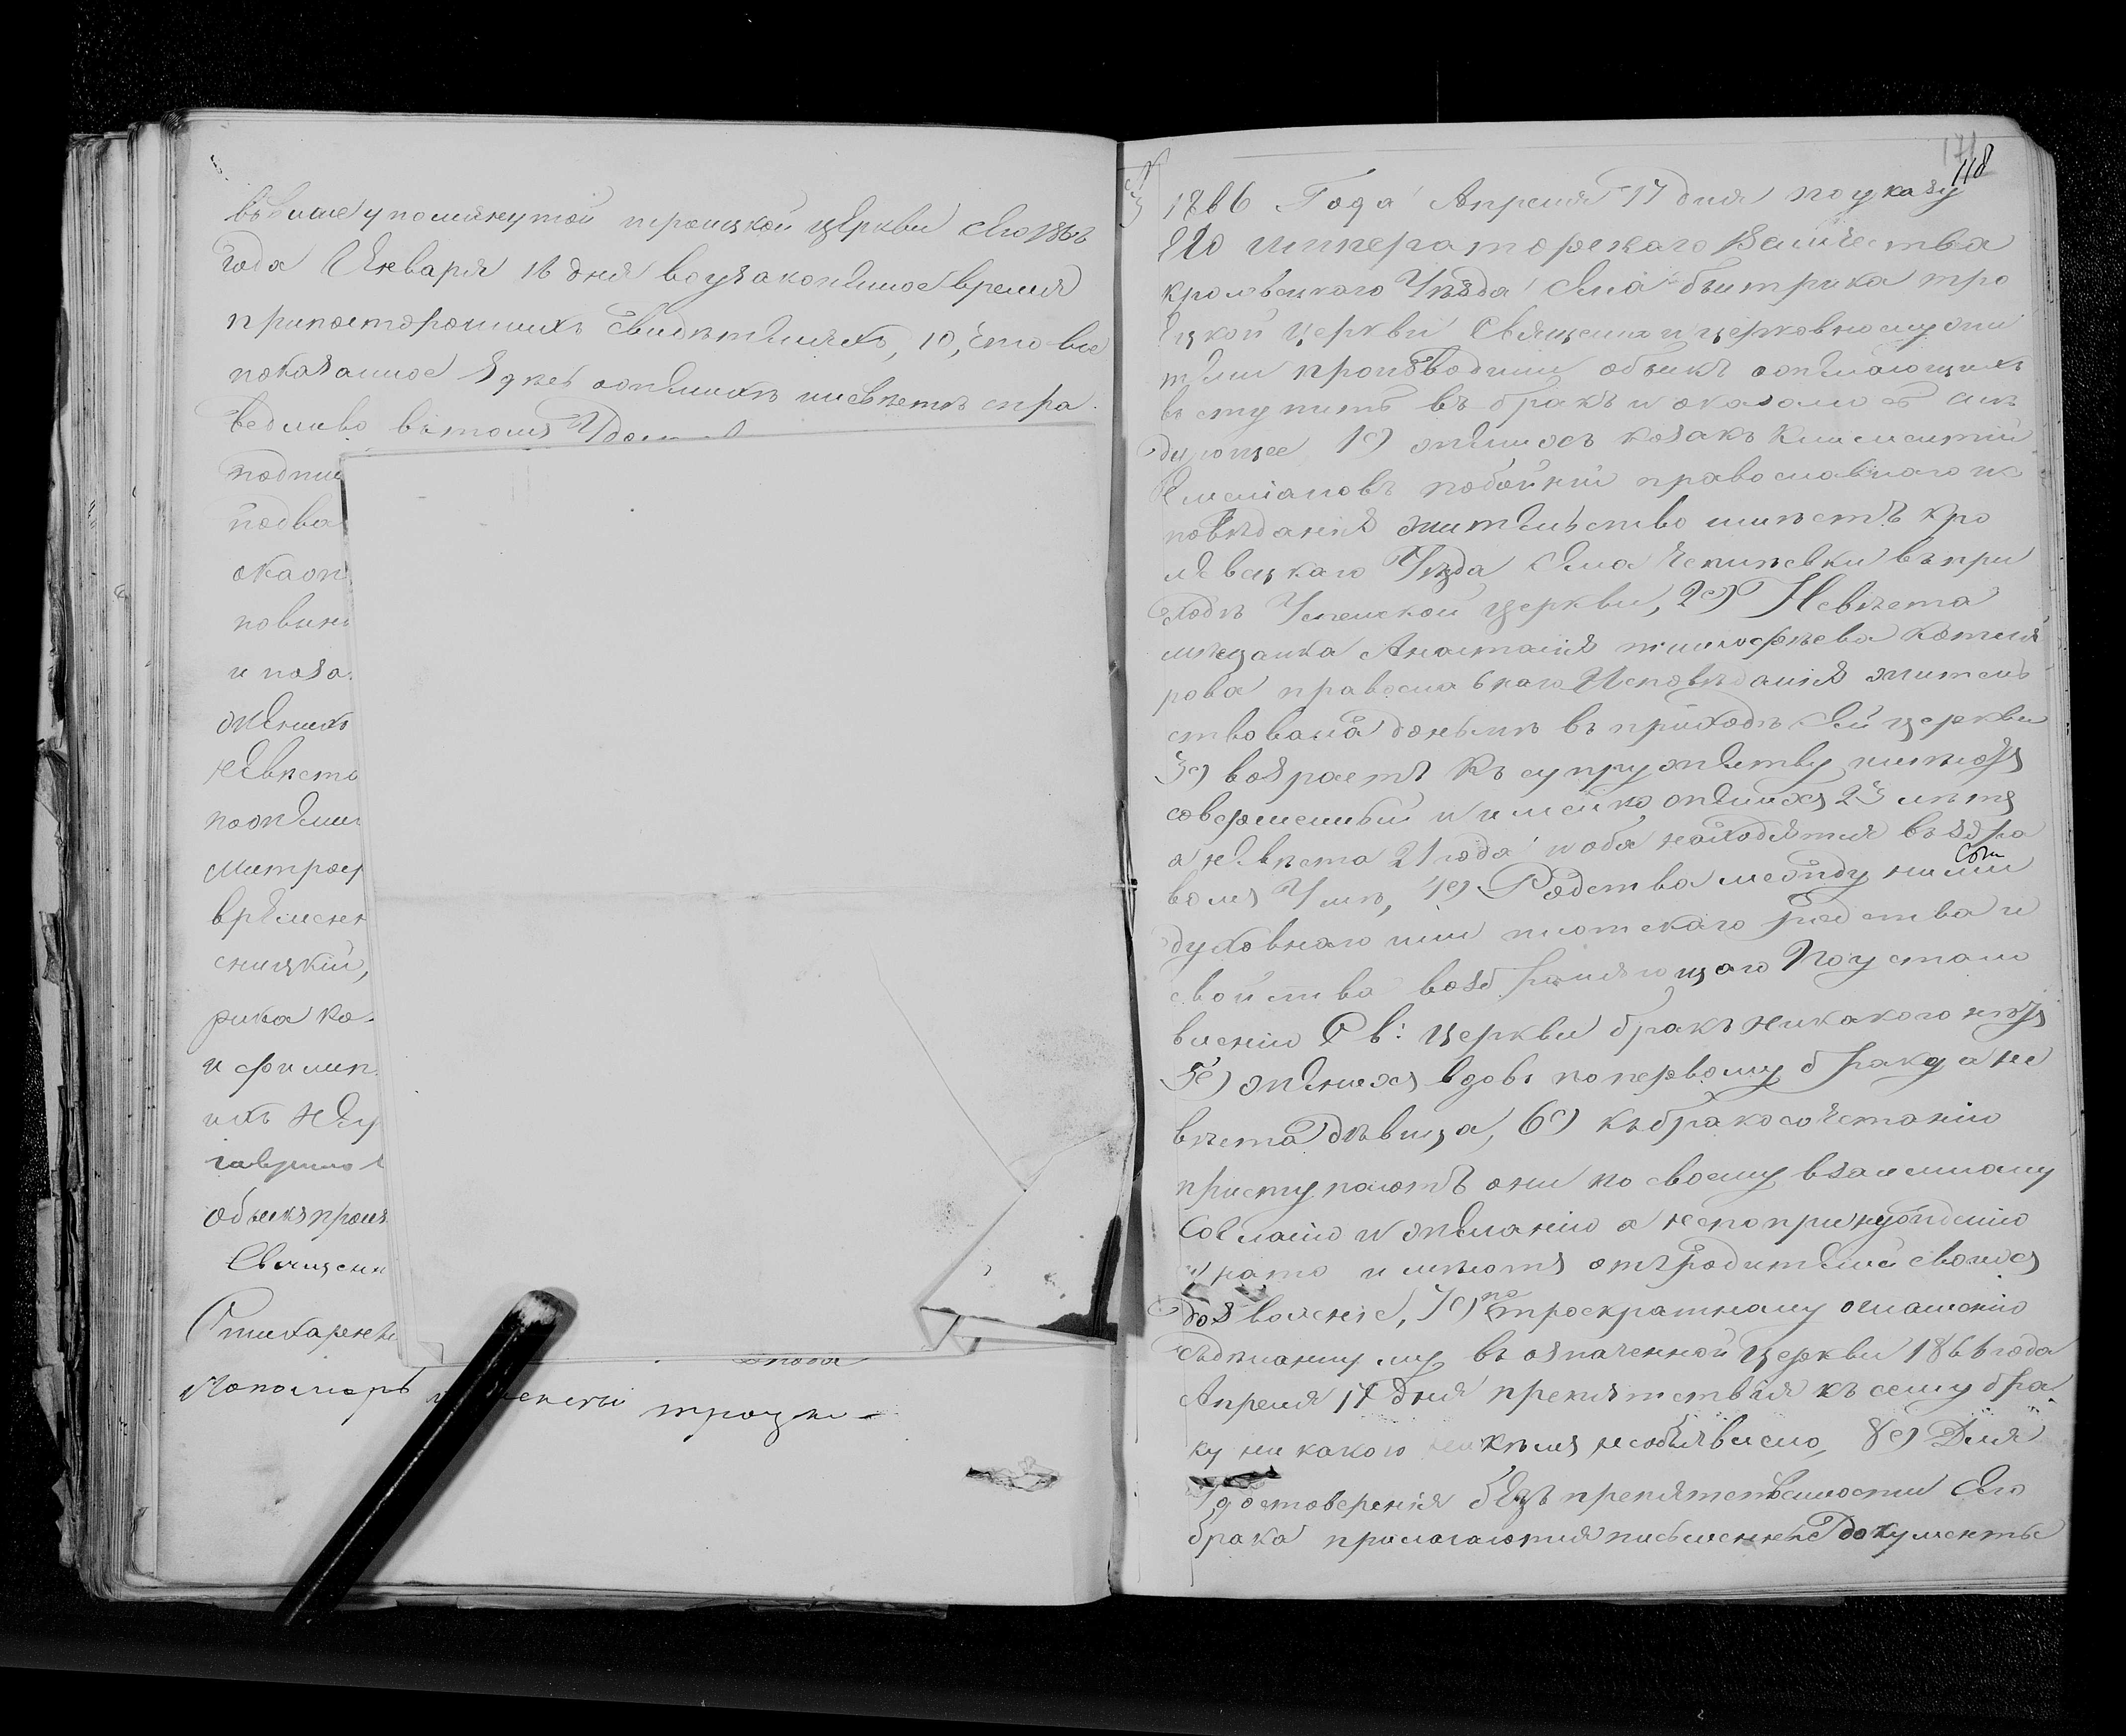 въ више упомянутой троицкой церкви сего 1866
года Января 16 дня воузаконенное время
припосторонныхъ свидѣтеляхъ, 10, что все
показанное здесь оженихѣ иневѣстѣ спра
ведливо вътомъ
подпи
подва
обаоп
повин
и пока
женихъ
невѣста
поженин
Митроф
времен
сницкій,
рика ко
и филип
ихъ неу
гаврило
Обыскъ произ
Священн
Стихарный
Пономарь троцк
118
1866 Года Апреля 17 дня поуказу
Его императорскаго величества
кролевецкаго Уѣзда села быстрика тро
ецкой церкви Священно и церковнослужи
тели производили обыскъ ожелающихъ
вступить въ бракъ и оказалось слѣ
дующее 1е) женихъ козакъ Климентий
Емелiановъ побойній православнаго ис
повѣданія жительство имѣетъ кро
левецкаго Уѣзда села чепиевки въ при
ходѣ Успенской церкви, 2е) Невѣста
мѣщанка Анастасія тимофѣева котля
рова православнаго Исповѣданія житель
ствовала донынѣ въ приходѣ сей церкви
3е) возрастъ къ супружеству имѣютъ
совершенный и именно женихъ 23 лѣтъ
а невѣста 21 года и оба находятся въ здра
вомъ Умѣ, 4е) Родства между ними
духовнаго или плотскаго родства и
свойства возбраняющаго Поустано
вленію Св: церкви бракъ никакого нѣтъ
5е) женихъ вдовъ по первому браку а не
вѣста дѣвица, 6е) къ бракосочетанію
приступаютъ они по своему взаимному
Согласію и желанію а непопринужденію
и нато имѣютъ отъ родителей своихъ
дозволеніе, 7е) по троекратному оглашенію
сдѣланному въ означенной церкви 1866 года
Апреля 17 дня препятствія къ сему бра
ку ни какого никѣмъ необъявлено, 8е) Для
Удостоверенія безъ препятственности сего
брака прилагаются письменные документы